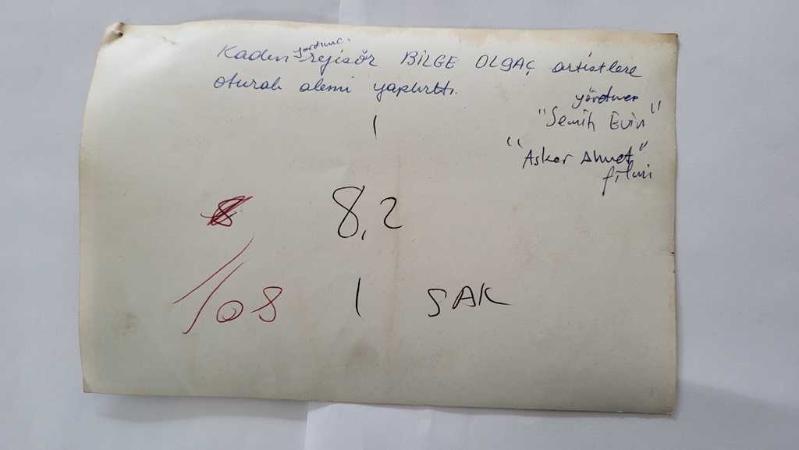 yardımc.
Kadın rejisör BİLGE OLGAÇ artistlere
oturak alemi yaptırttı.
yönetmen
"Semih Evin"
"Asker Ahmet"
filmi
1
8,2
8
/08
1 SAK